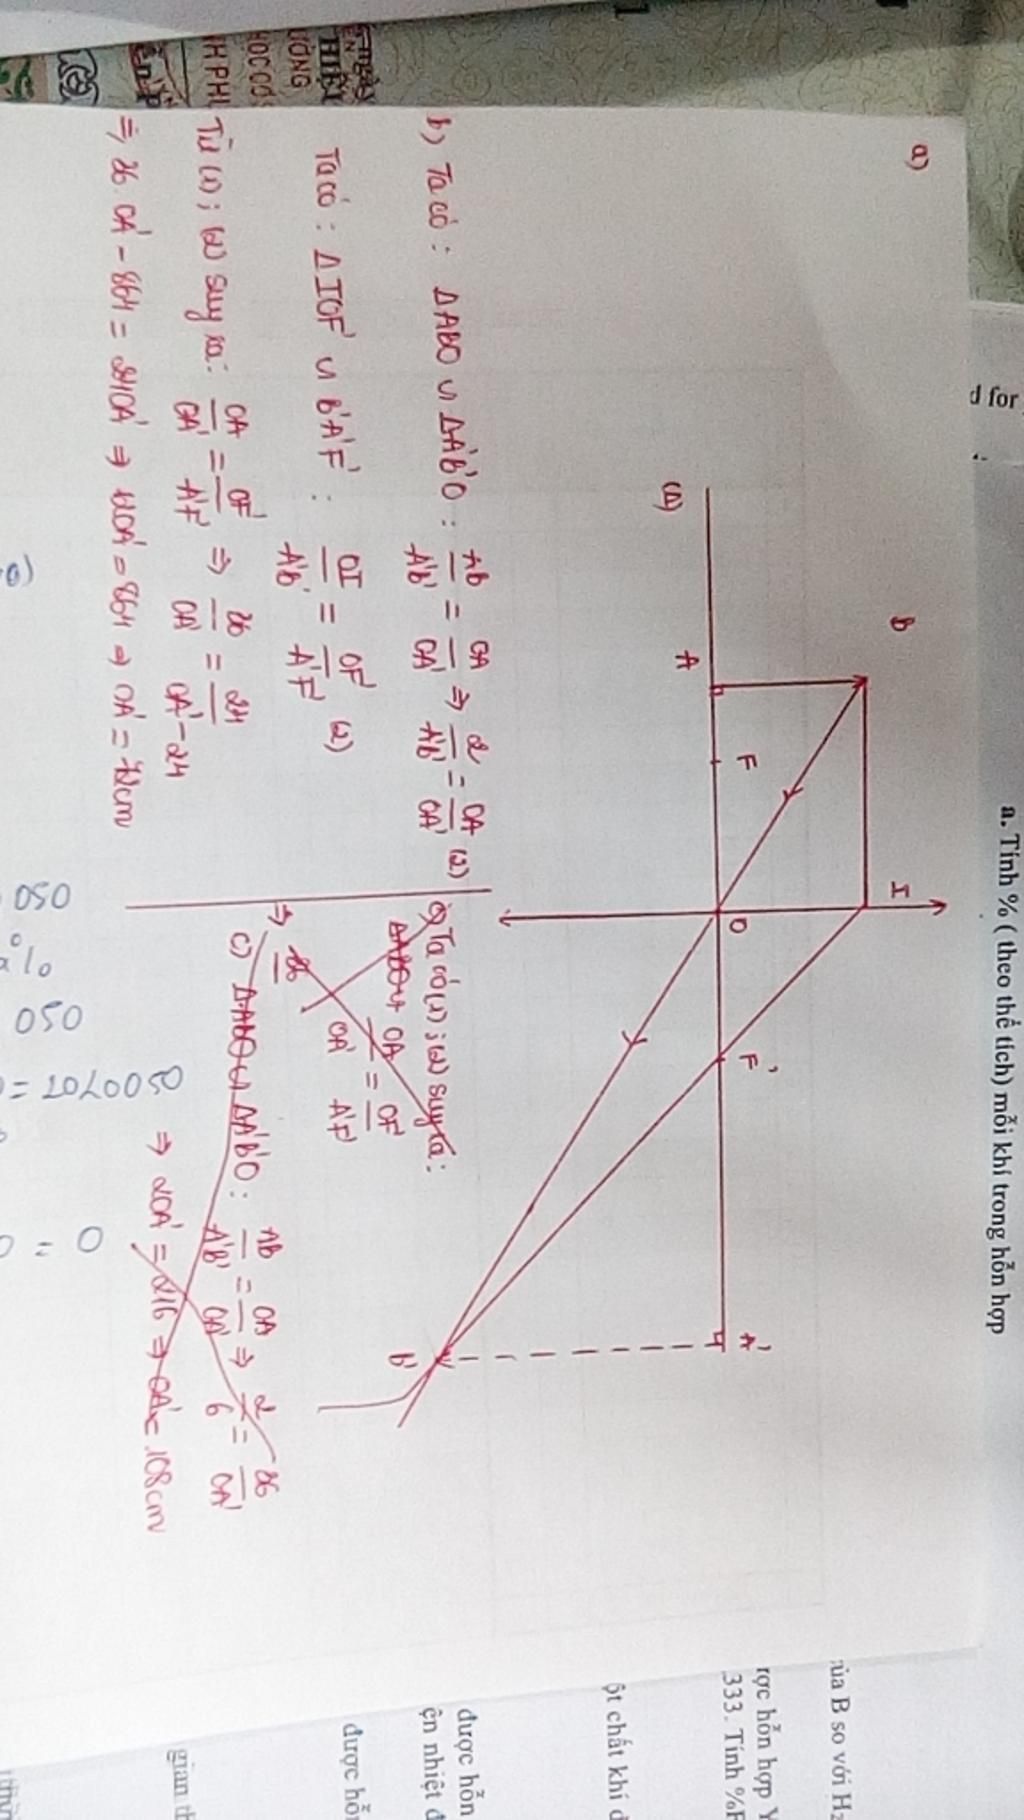 a)
B
I
(Δ)
A
F
O
F'
A'
B'
b) Ta có : ΔABO ∽ ΔA'B'O : AB/A'B' = OA/OA' ⇒ 2/A'B' = OA/OA' (1)
Ta có : ΔIOF' ∽ B'A'F' : OI/A'B' = OF'/A'F' (2)
Từ (1) ; (2) suy ra: OA/OA' = OF'/A'F' ⇒ 36/OA' = 24/OA'-24
⇒ 36 OA' - 864 = 24OA' ⇒ 12OA' = 864 ⇒ OA' = 72cm
c) Ta có (1) ; (2) suy ra :
OA/OA' = OF'/A'F'
⇒ 36
c) ΔABO ∽ ΔA'B'O : AB/A'B' = OA/OA' ⇒ 2/6 = 36/OA'
⇒ 2OA' = 216 ⇒ OA' = 108cm
a. Tính % ( theo thể tích) mỗi khí trong hỗn hợp
d for
của B so với H₂
333. Tính %
ột chất khí
được hỗn
ện nhiệt
được hỗ
gian
HIỆU
ƯỜNG
HỌC CƠ
050
050
0 =